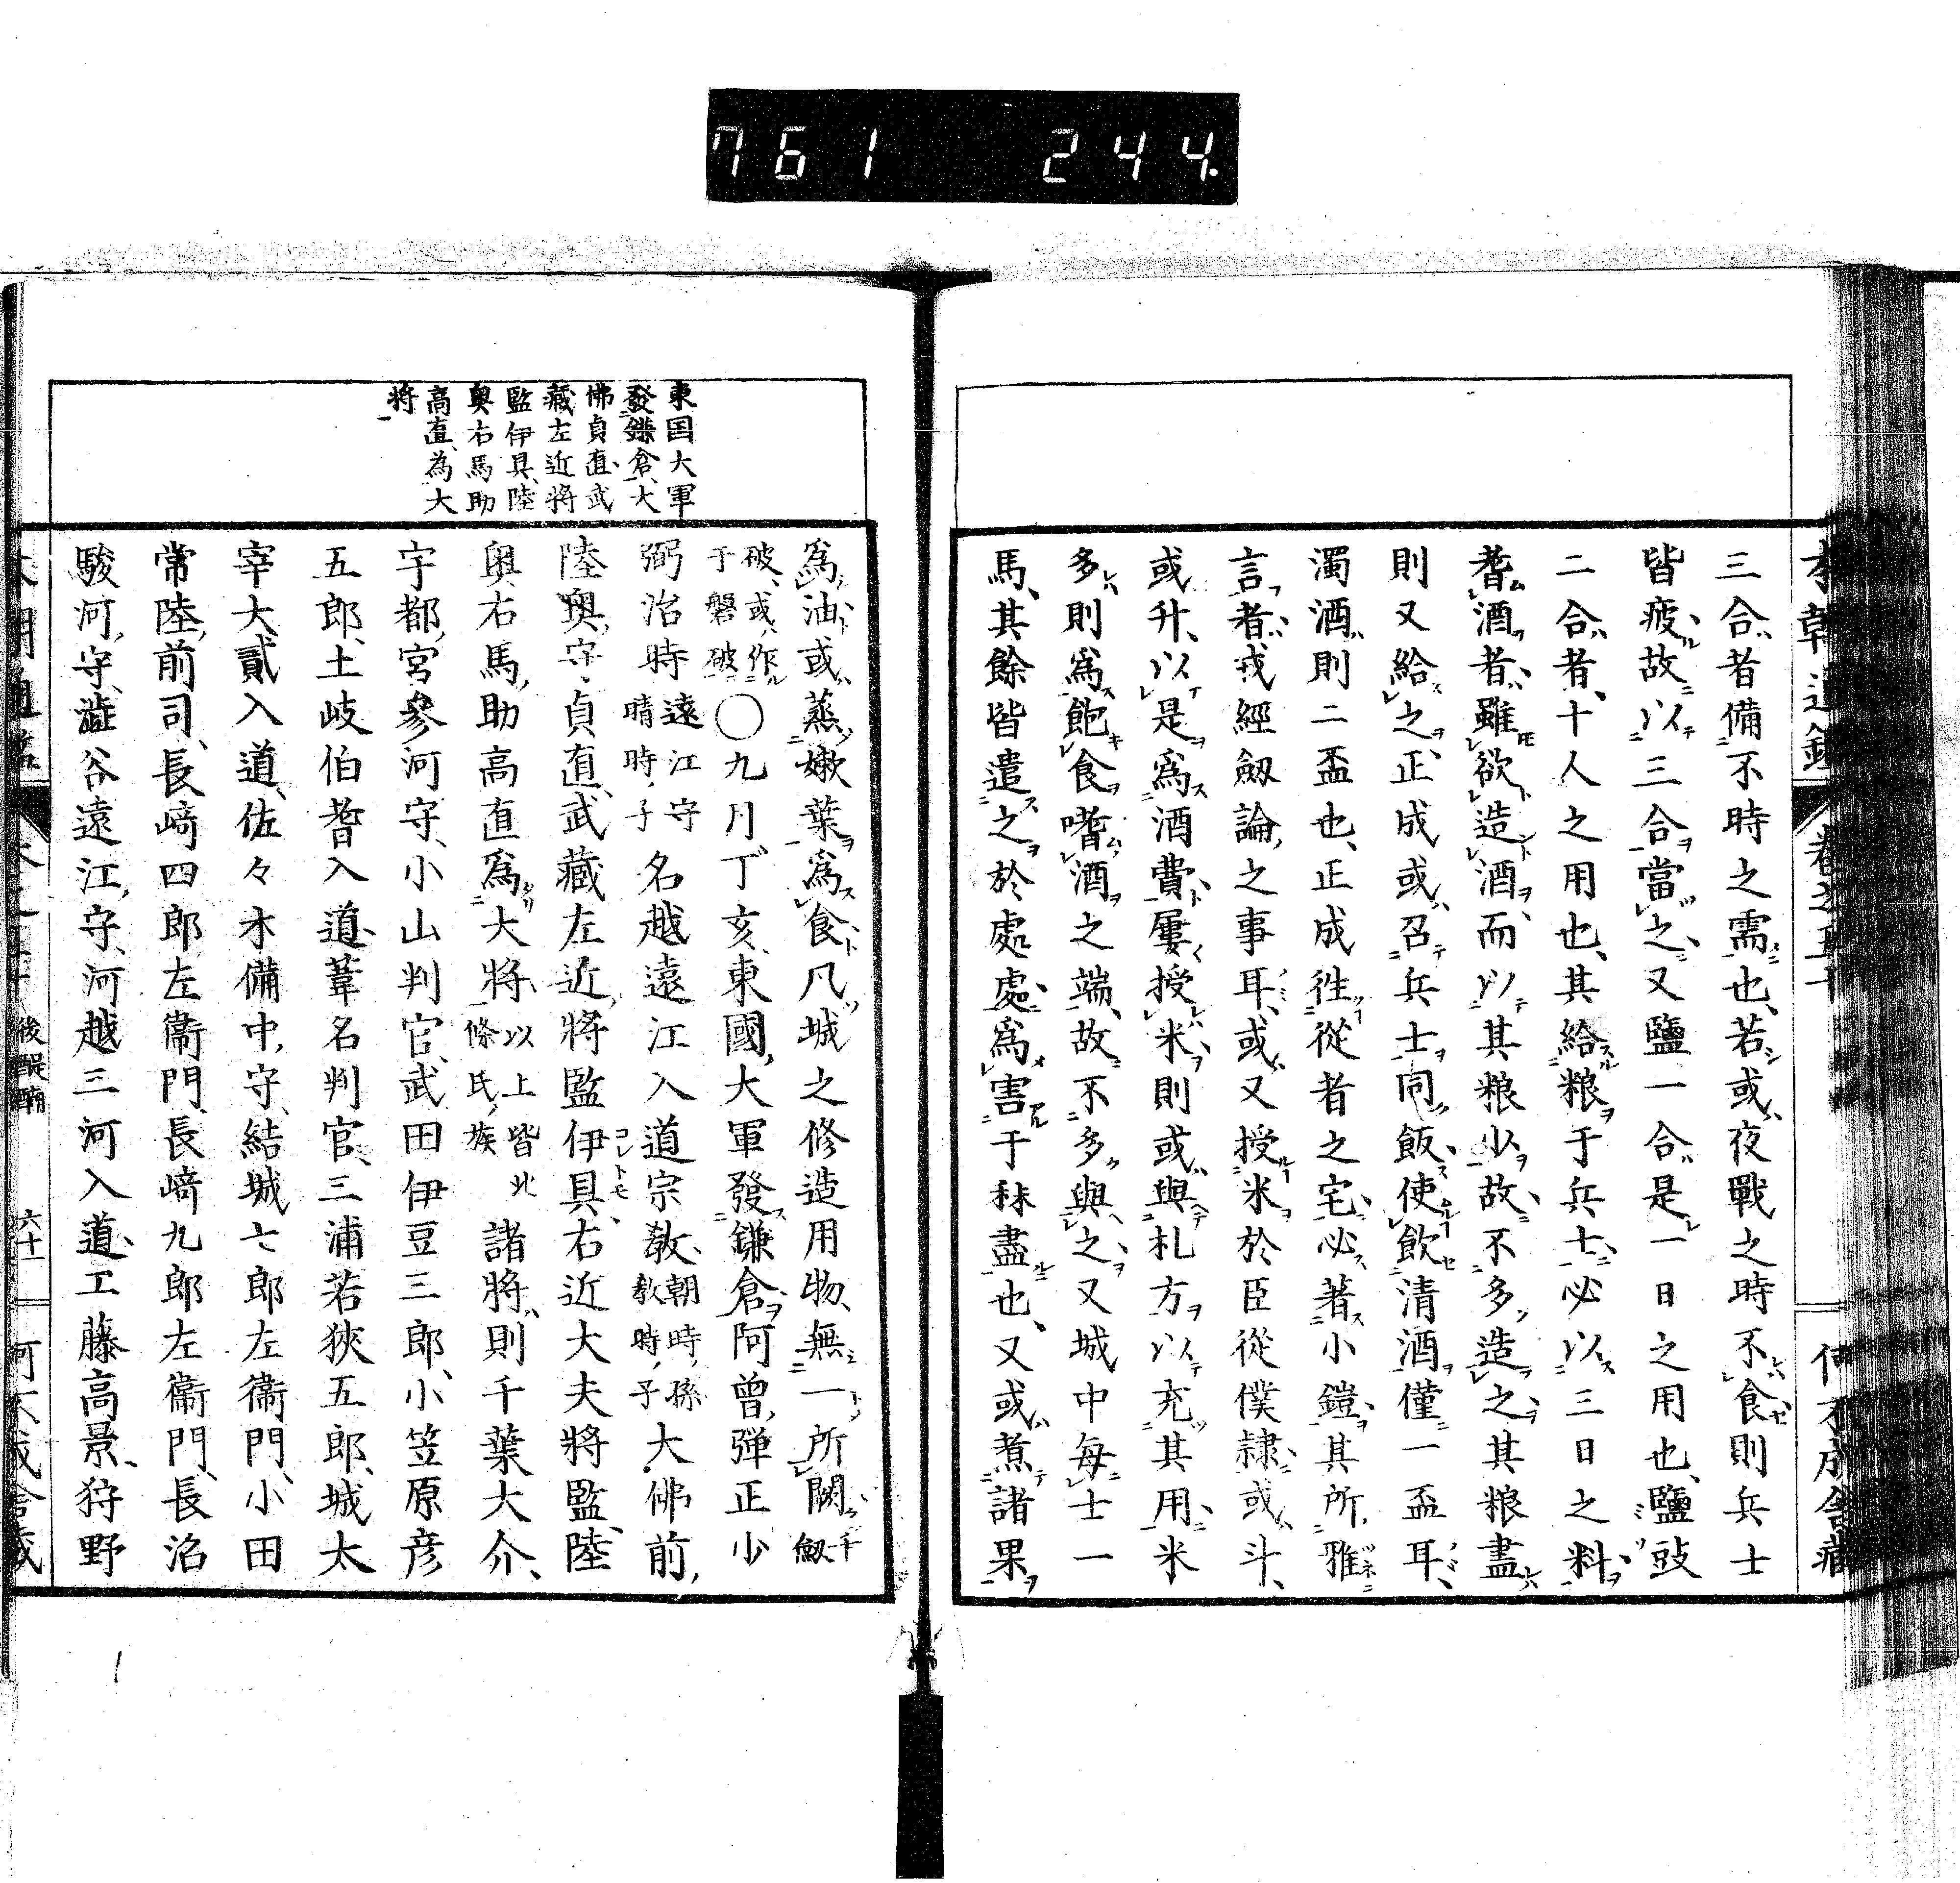 761 244.
本朝通鑑 卷之五十
三合者備不時之需也、若或夜戰之時不食則兵士
皆疲故以三合當之、又鹽一合是一日之用也、鹽豉
二合者、十人之用也、其給粮于兵士必以三日之料
嗜酒者雖欲造酒而以其粮少故不多造之其粮盡
則又給之、正成或召兵士同飯使飲清酒僅一盃耳、
濁酒則二盃也、正成徃從者之宅必著小鎧其所雅
言者、戎經劔論之事耳、或又授米於臣從僕隷或斗、
或升、以是爲酒費屢授米則或與札方以充其用米
多則爲飽食嗜酒之端、故不多與之又城中每士一
馬、其餘皆遣之於處處爲害于秣盡也、又或煮諸果
東国大軍
發鎌倉、大
佛貞直、武
藏左近將
監伊具、陸
奥右馬助
高直、為大
将
爲油或蒸嫩葉爲食凡城之修造用物、無一所闕千劔
破、或作于磐破〇九月丁亥、東國大軍發鎌倉阿曾彈正少
弼治時遠江守晴時子名越遠江入道宗教、朝時孫教時子大佛前
陸奥守貞直、武藏左近將監伊具右近大夫將監、陸
奥右馬助高直爲大將以上皆北條氏族諸將則千葉大介、
宇都宮參河守、小山判官、武田伊豆三郎、小笠原彦
五郎、土岐伯耆入道、葦名判官、三浦若狹五郎、城太
宰大貳入道、佐々木備中守、結城七郎左衞門、小田
常陸前司、長﨑四郎左衞門、長﨑九郎左衞門、長沼
駿河守、澁谷遠江守、河越三河入道、工藤高景、狩野
後醍醐 六十一